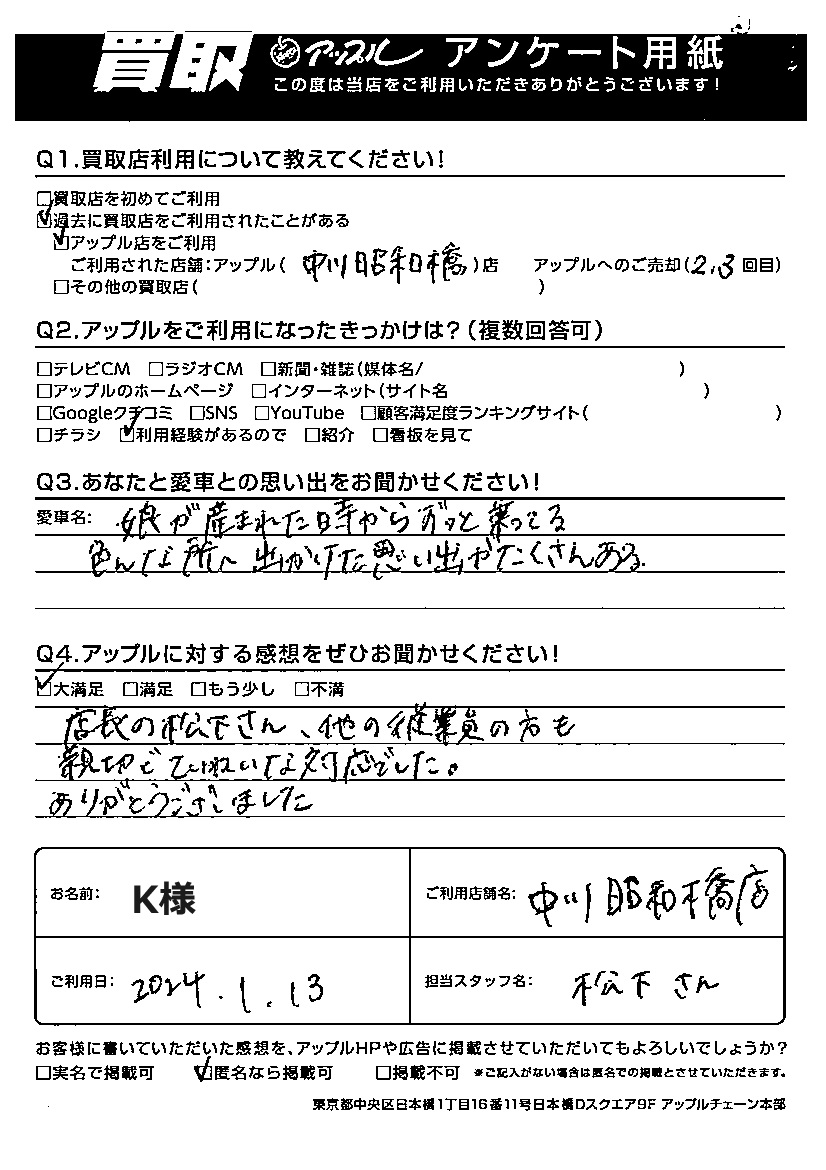 買取 アップル アンケート用紙
この度は当店をご利用いただきありがとうございます!
Q1.買取店利用について教えてください!
□買取店を初めてご利用
☑過去に買取店をご利用されたことがある
☑アップル店をご利用
ご利用された店舗:アップル(中川昭和橋)店 アップルへのご売却(2.3回目)
□その他の買取店( )
Q2.アップルをご利用になったきっかけは?(複数回答可)
□テレビCM □ラジオCM □新聞・雑誌(媒体名/ )
□アップルのホームページ □インターネット(サイト名 )
□Googleクチコミ □SNS □YouTube □顧客満足度ランキングサイト( )
□チラシ ☑利用経験があるので □紹介 □看板を見て
Q3.あなたと愛車との思い出をお聞かせください!
愛車名: 娘が産まれた時からずっと乗ってる
色んな所へ出かけた思い出がたくさんある.
Q4.アップルに対する感想をぜひお聞かせください!
☑大満足 □満足 □もう少し □不満
店長の松下さん、他の従業員の方も
親切でていねいな対応でした。
ありがとうございました
お名前: K様 ご利用店舗名: 中川昭和橋店
ご利用日: 2024.1.13 担当スタッフ名: 松下さん
お客様に書いていただいた感想を、アップルHPや広告に掲載させていただいてもよろしいでしょうか?
□実名で掲載可 ☑匿名なら掲載可 □掲載不可 ※ご記入がない場合は匿名での掲載とさせていただきます。
東京都中央区日本橋1丁目16番11号日本橋Dスクエア9F アップルチェーン本部